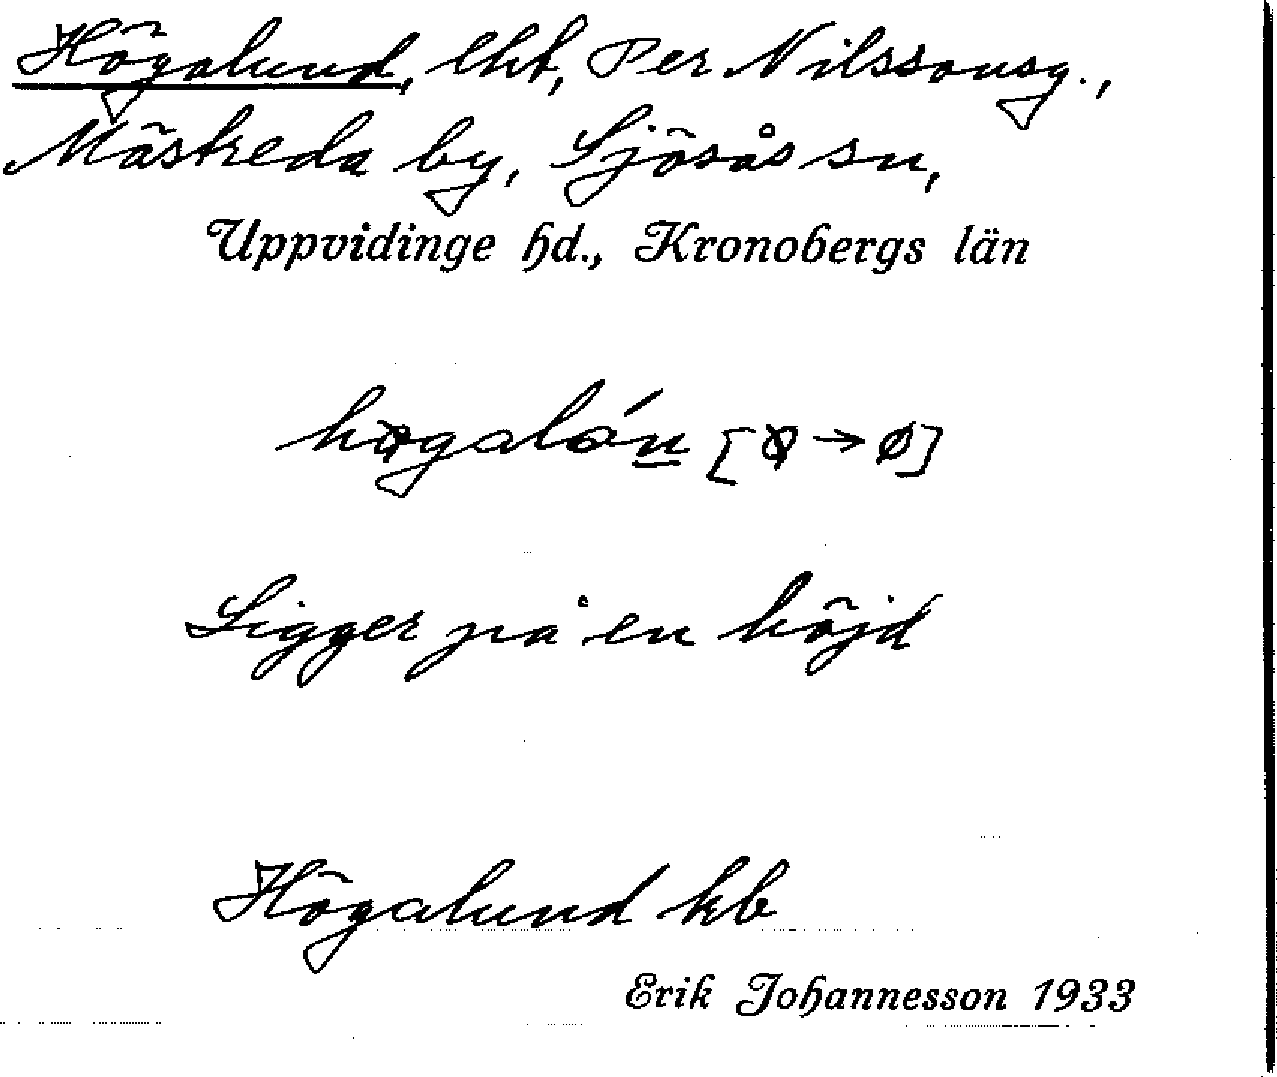 Högalund, lht, Per Nilssonsg.,
Mästreda by, Sjösås sn,
Uppvidinge hd., Kronobergs län
[ → ø]
Ligger på en höjd
Högalund kb
Erik Johannesson 1933